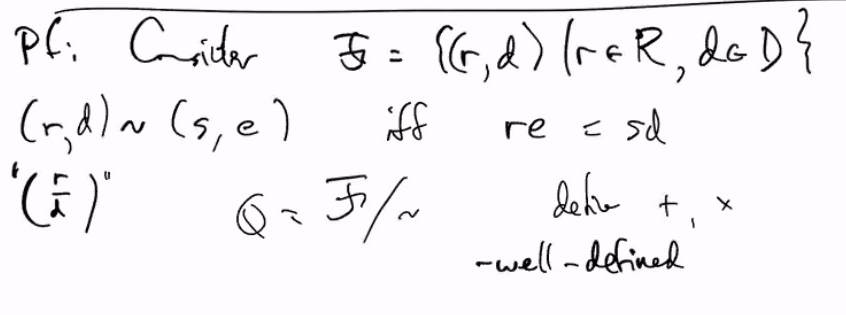 Pf: Consider F = {(r,d) | r ∈ R, d ∈ D}
(r,d) ~ (s,e) iff re = sd
"(r/d)" Q = F/~ define +, ×
-well-defined